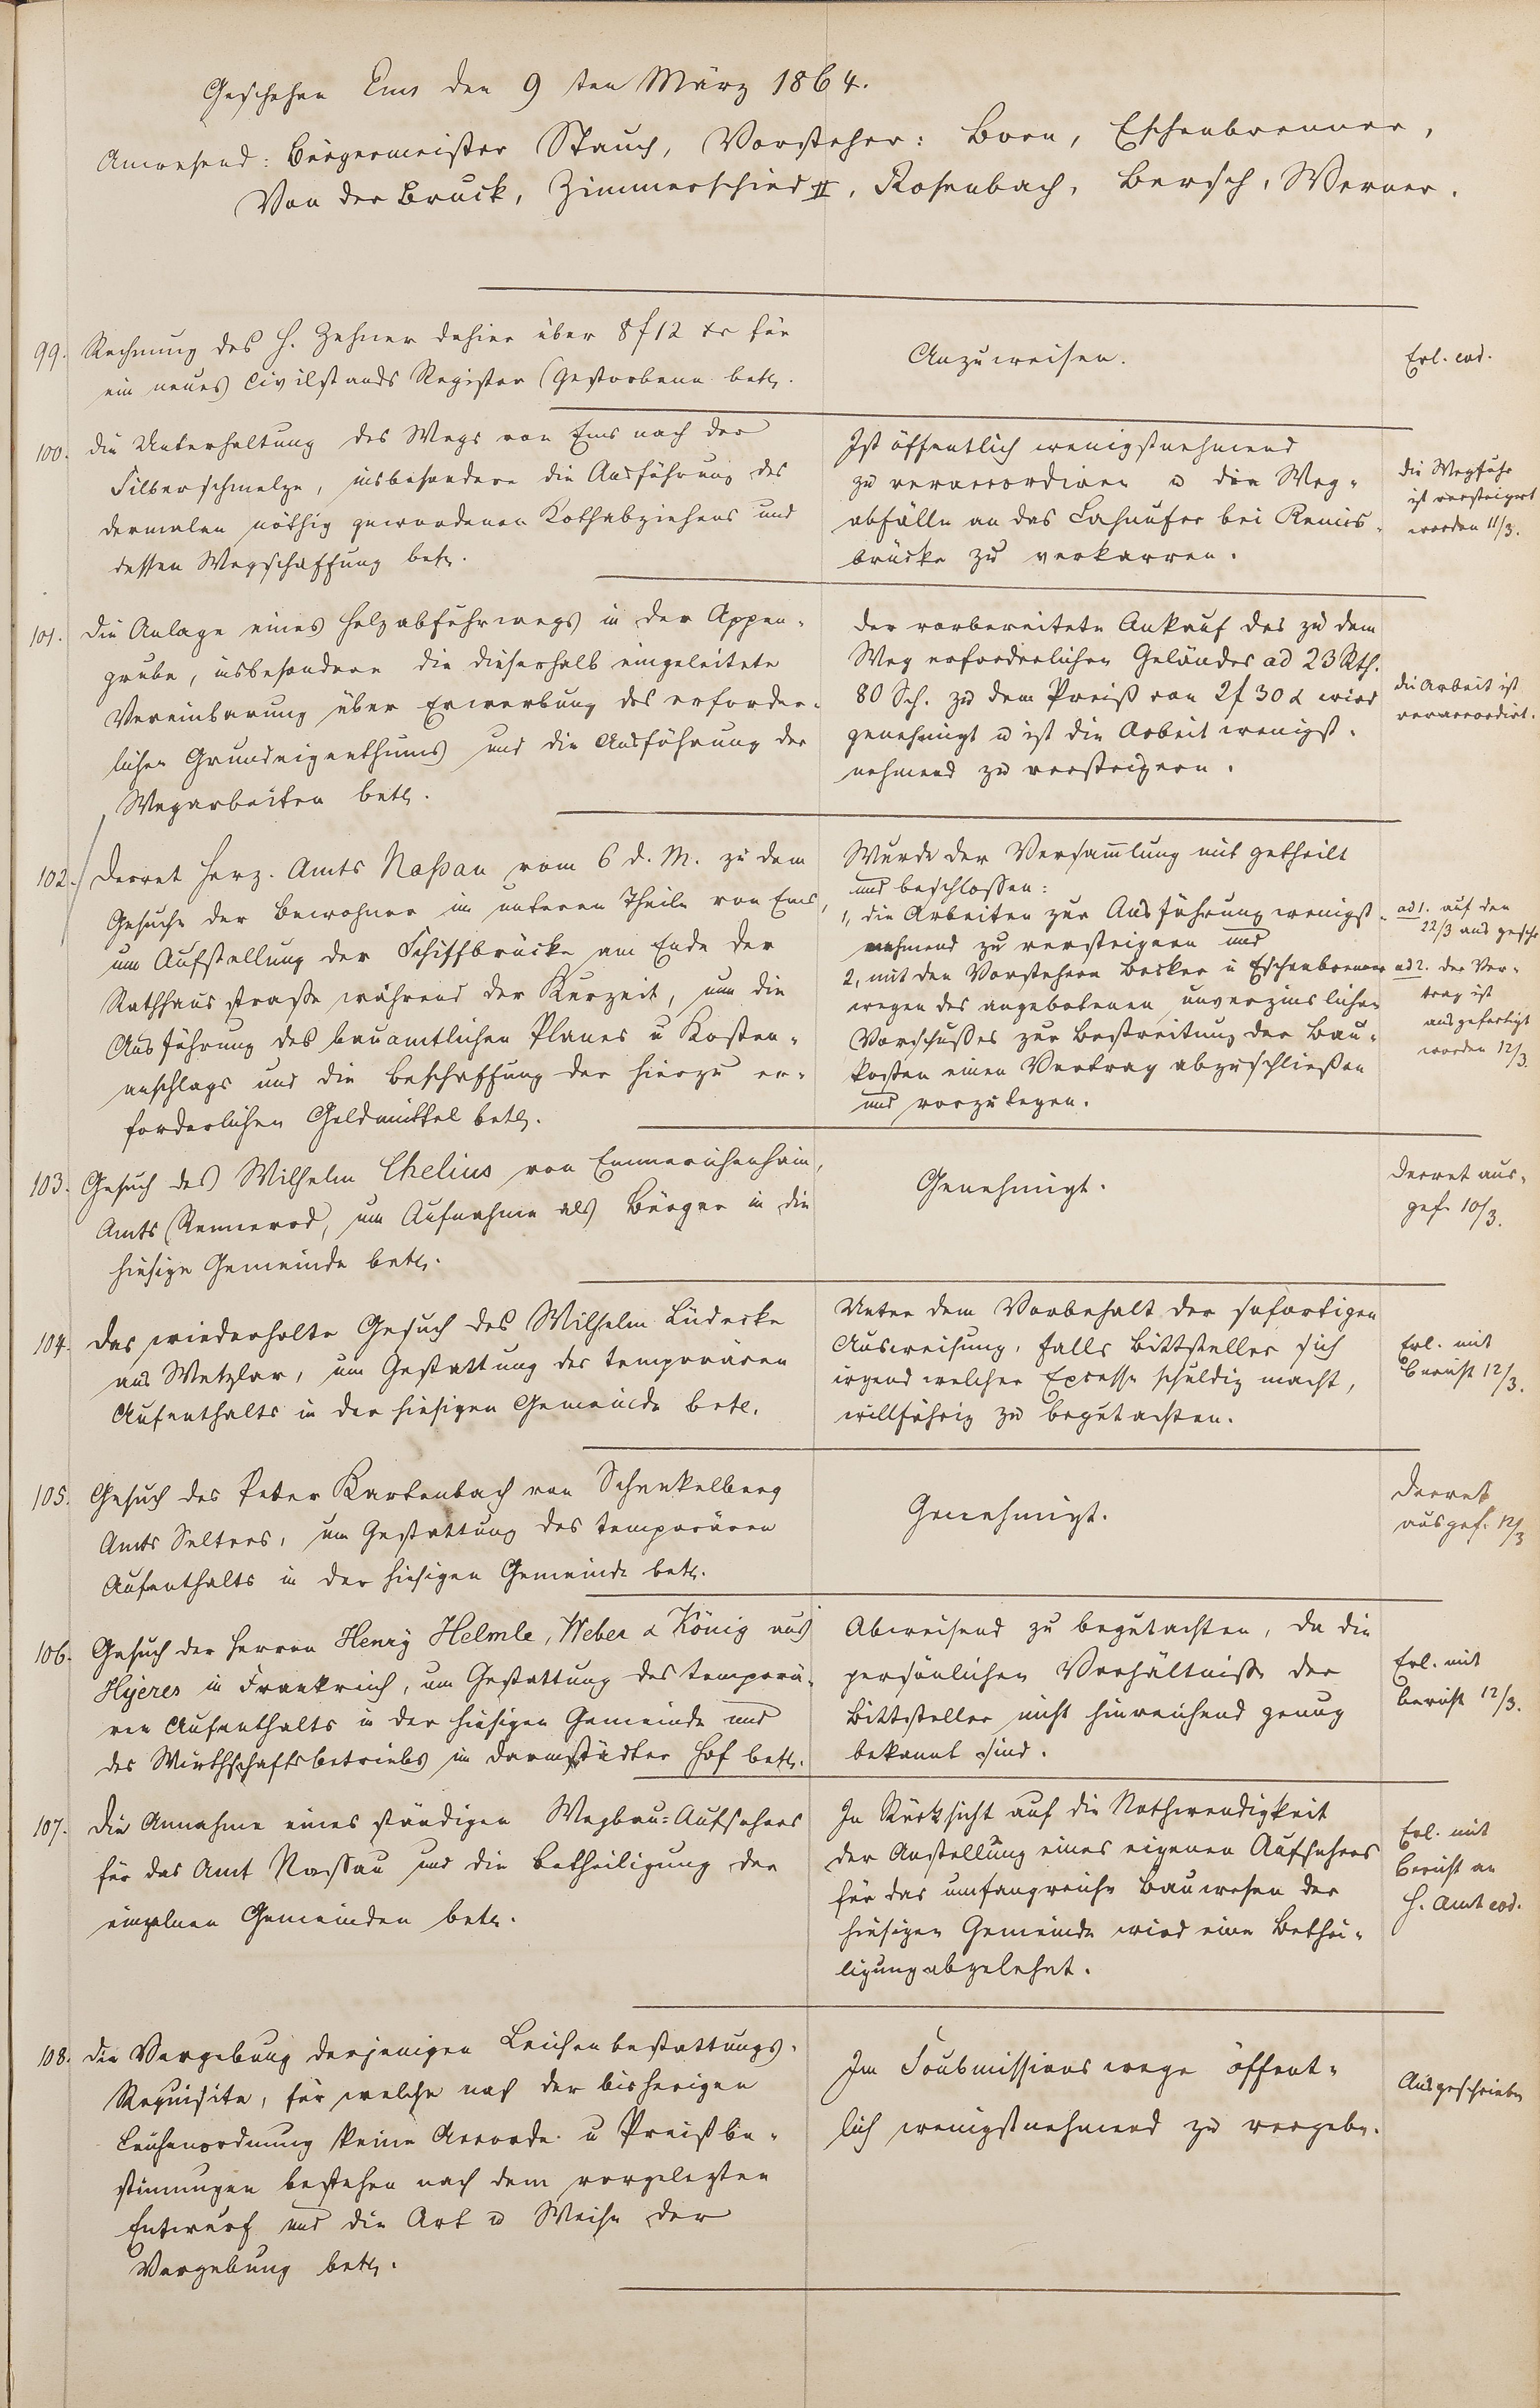 Geschehen Ems den 9 ten März 1864.
Anwesend: Bürgermeister Spauch, Vorsteher: Born, Eschenbrenner,
Von der Bruck, Zimmerschied II, Rosenbach, Bersch, Werner.
99. Rechnung des H. Zehner dahier über 8 f 12 xr für
ein neues Civilstands Register (Gestorbene betr.
Anzuweisen.
Erl. eod.
100. die Unterhaltung des Wegs von Ems nach der
Silberschmelze, insbesondere die Ausführung des
dermalen nöthig gewordenen Kothabziehens und
dessen Wegschaffung betr.
Ist öffentlich wenigstnehmend
zu veraccordiren u die Weg-
abfälle an das Lahnufer bei Remis-
brücke zu verkarren.
die Wegfuhr
ist versteigert
worden 11/3.
101. die Anlage eines Holzabfuhrwegs in der Appen-
grube, insbesondere die dieserhalb eingeleitete
Vereinbarung über Erwerbung des erforder-
lichen Grundeigenthums und die Ausführung der
Wegarbeiten betr.
der vorbereitete Ankauf des zu dem
Weg erforderlichen Geländes ad 23 Rth.
80 Sch. zu dem Preiß von 2 f 30 x wird
genehmigt u ist die Arbeit wenigst-
nehmend zu versteigern.
die Arbeit ist
veraccordirt.
102. decret Herz. Amts Naßau vom 6 d. M. zu dem
Gesuche der Bewohner im unteren Theile von Ems,
um Aufstellung der Schiffbrücke am Ende der
Rathhausstraße während der Kurzeit, nun die
Ausführung des bauamtlichen Planes u Kosten-
anschlags und die Beschaffung der hierzu er-
forderlichen Geldmittel betr.
Wurde der Versam̅lung mit getheilt
und beschlossen:
1, die Arbeiten zur Ausführung wenigst-
nehmend zu versteigern und
2, mit den Vorstehern Becker u Eschenbrenner
wegen des angebotenen unverzinslichen
Vorschußes zur Bestreitung der Bau-
kosten einen Vertrag abzuschließen
und vorzulegen.
ad 1. auf den
22/3 aus geschr
ad 2. der Ver-
trag ist
ausgefertigt
worden 12/3.
103. Gesuch des Wilhelm Chelius von Emmerichenhain,
Amts Rennerod, um Aufnahme als Bürger in die
hiesige Gemeinde betr.
Genehmigt.
decret aus-
gef. 10/3.
104. das wiederholte Gesuch des Wilhelm Lüdecke
aus Wetzlar, um Gestattung des temporären
Aufenthalts in der hiesigen Gemeinde betr.
Unter dem Vorbehalt der sofortigen
Ausweisung, falls Bittsteller sich
irgend welcher Excesse schuldig macht,
willfährig zu begutachten.
Erl. mit
Bericht 12/3.
105. Gesuch des Peter Kartenbach von Schenkelberg
Amts Selters, um Gestattung des temporären
Aufenthalts in der hiesigen Gemeinde betr.
Genehmigt.
decret
ausgef. 12/3
106. Gesuch der Herren Henry Helmle, Weber & König aus
Hyeres in Frankreich, um Gestattung des temporä-
ren Aufenthalts in der hiesigen Gemeinde und
des Wirthschaftsbetriebs im Darmstädter Hof betr.
Abweisend zu begutachten, da die
persönlichen Verhältnisse der
Bittsteller nicht hinreichend genug
bekannt sind.
Erl. mit
Bericht 12/3.
107. die Annahme eines ständigen Wegbau-Aufsehers
für das Amt Nassau und die Betheiligung der
einzelnen Gemeinden betr.
In Rücksicht auf die Nothwendigkeit
der Anstellung eines eigenen Aufsehers
für das umfangreiche Bauwesen der
hiesigen Gemeinde wird eine Bethei-
ligung abgelehnt.
Erl. mit
Bericht an
H. Amt eod.
108. die Vergebung derjenigen Leichenbestattungs-
Requisite, für welche nach der bisherigen
Leichenordnung keine Accorde u Preißbe-
stimmungen bestehen nach dem vorgelegten
Entwurf und die Art u Weise der
Vergebung betr.
Im Soubmissionswege öffent-
lich wenigstnehmend zu vergeben.
Ausgeschrieben